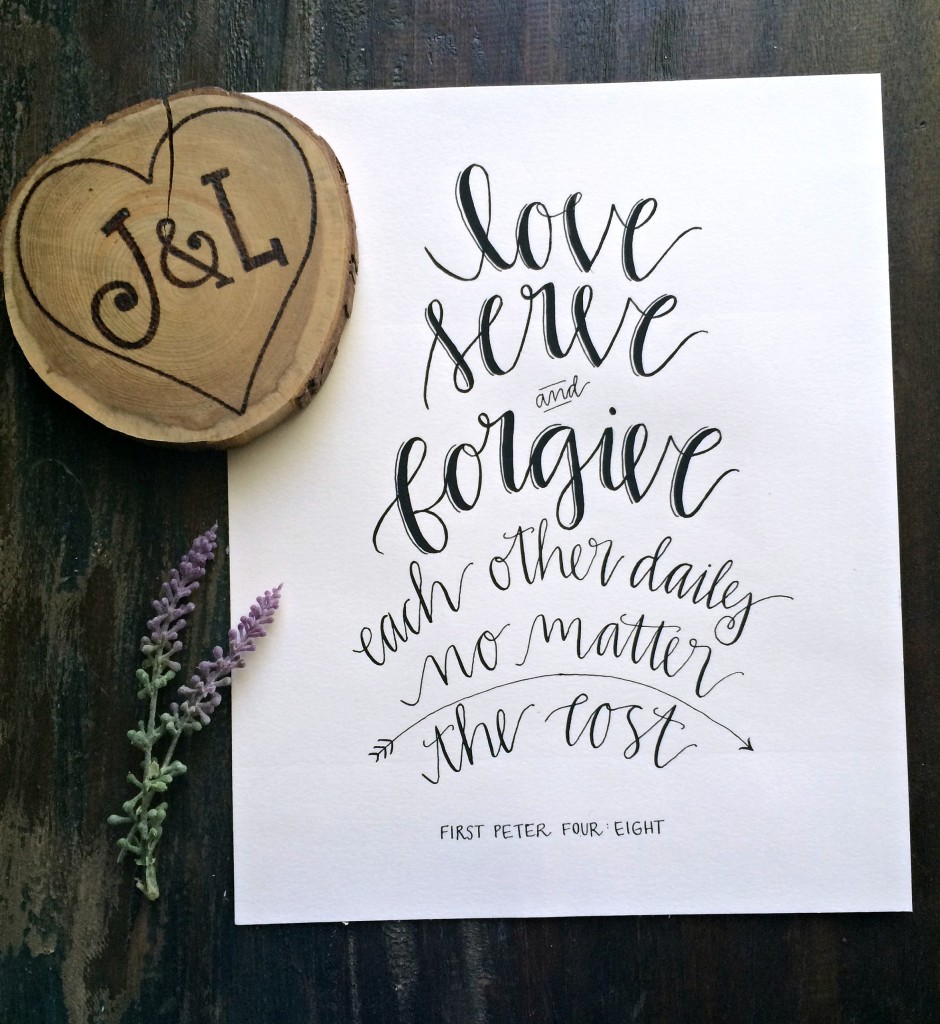 J&L
love
serve
and
forgive
each other daily
no matter
the cost
FIRST PETER FOUR:EIGHT